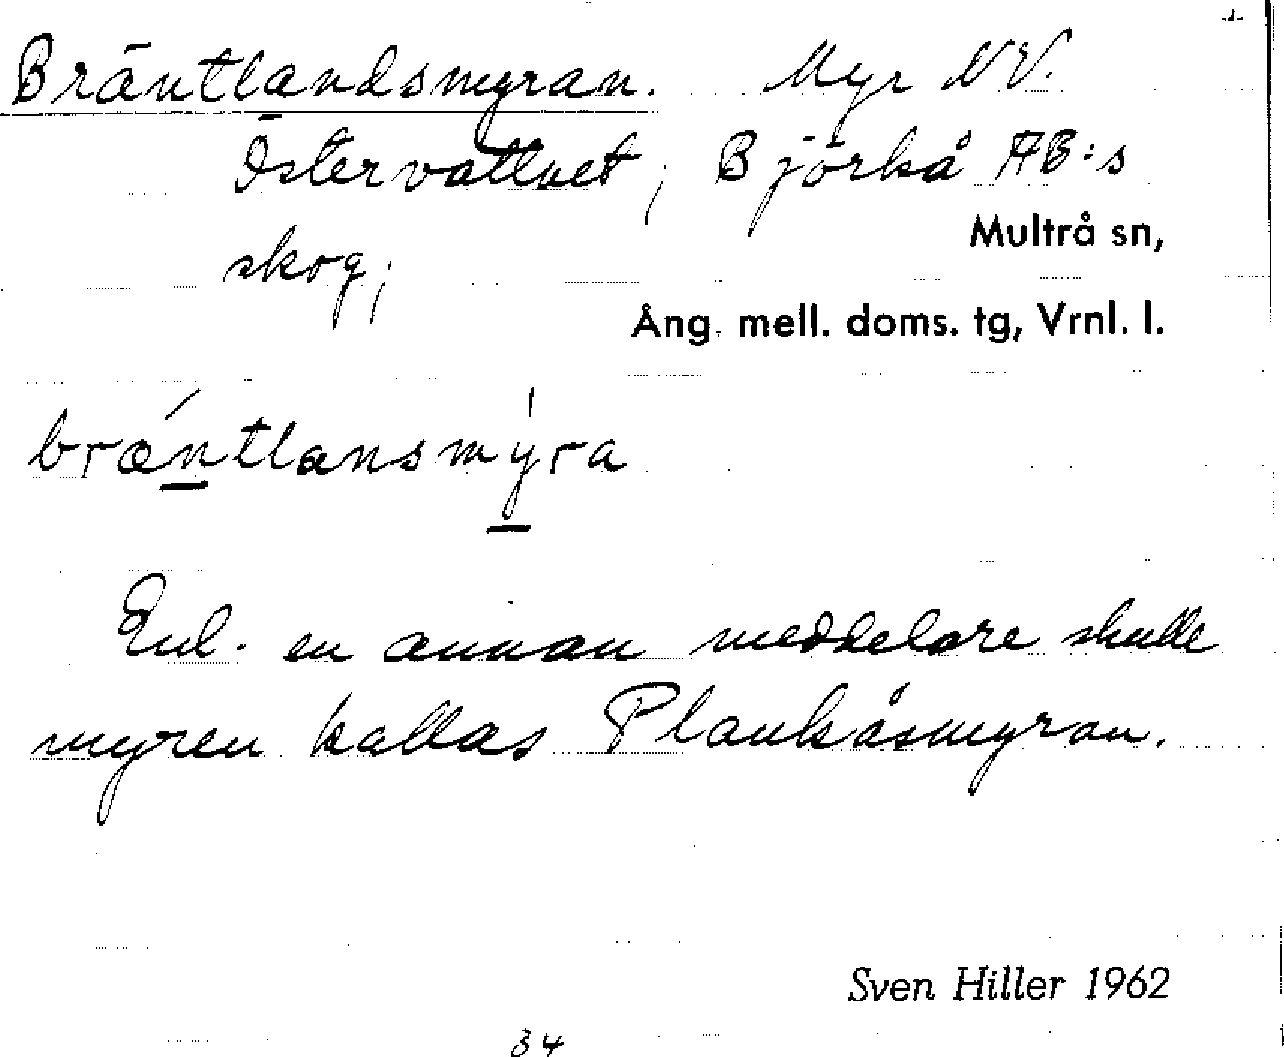 Bräntlandsmyran. Myr NV.
Östervattnet; Björkå AB:s
skog;
Multrå sn,
Ång. mell. doms. tg, Vrnl. l.
bræ´ntlansmýra
Enl. en annan meddelare skulle
myren kallas Plankåsmyran.
Sven Hiller 1962
34